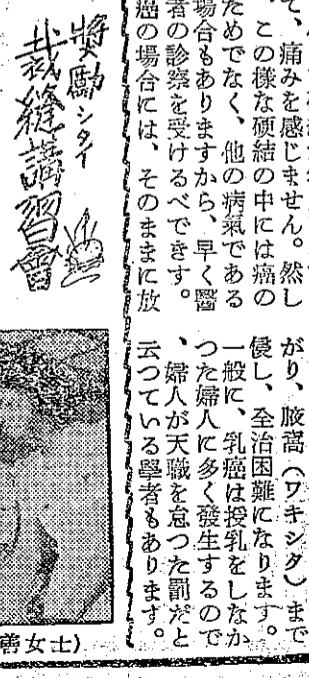 て、痛みを感じません。然し
この様な硬結の中には癌の
ためでなく、他の病氣である
場合もありますから、早く醫
者の診察を受けるべできす。
癌の場合には、そのままに放
がり、腋窩(ワキシダ)まで
優し、全治困難になります。
一般に、乳癌は授乳をしなか
つた婦人に多く發生するので
、婦人が天職を怠つた罰だと
云つている學者もあります。
奬勵シタイ
裁縫講習會
善女士)